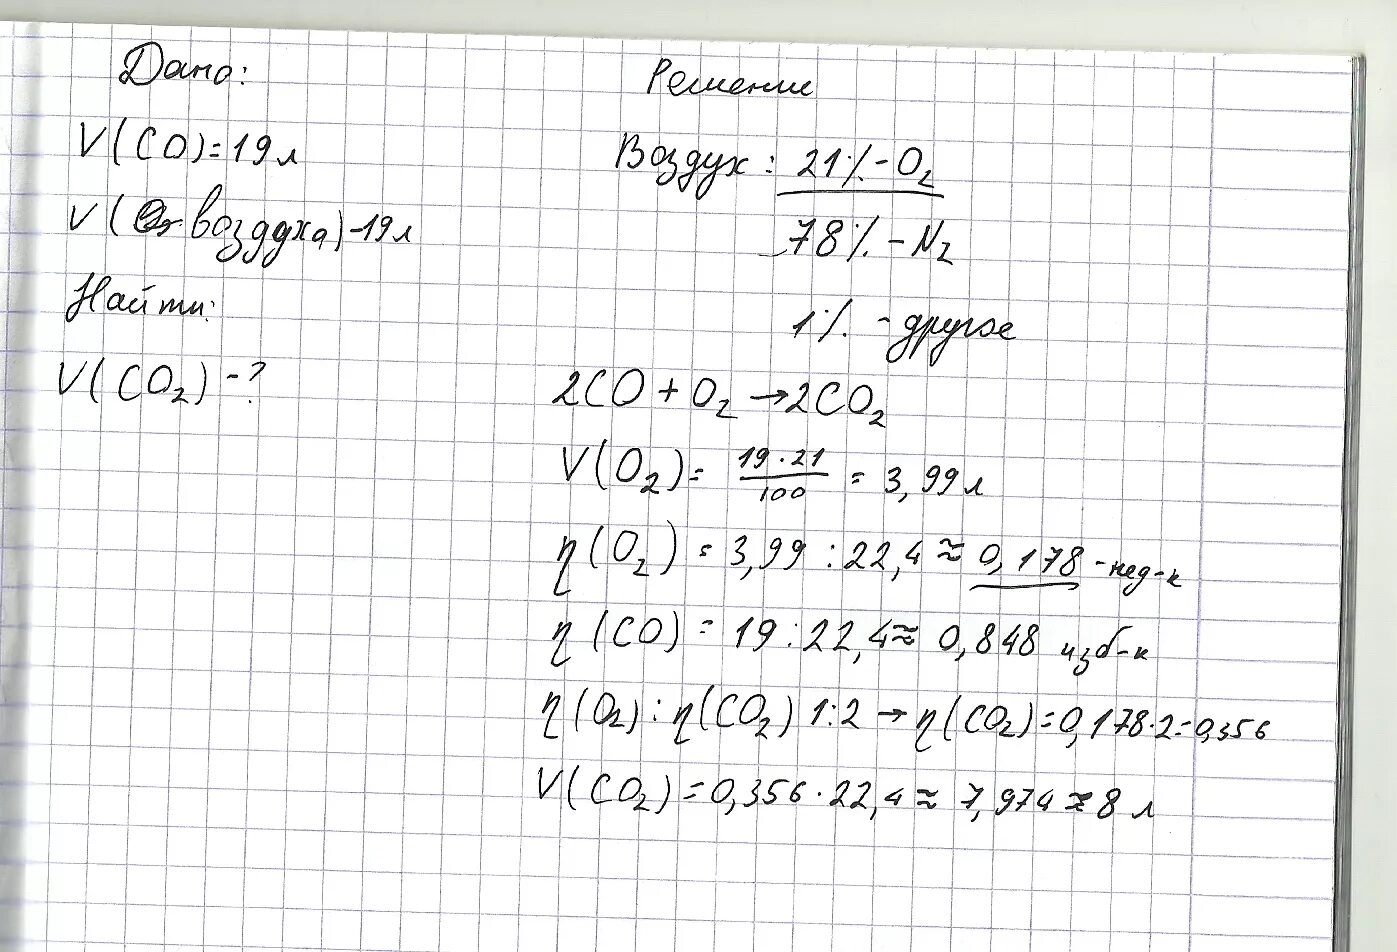 Дано:
V(CO)=19л
V( воздуха)-19л
Найти:
V(CO₂) -?
Решение
Воздух: 21% - O₂
78% - N₂
1% - другое
2CO + O₂ → 2CO₂
V(O₂) = 19·21/100 = 3,99 л
η(O₂) = 3,99 : 22,4 ≈ 0,178 - нед-к
η(CO) = 19 : 22,4 ≈ 0,848 изб-к
η(O₂) : η(CO₂) 1:2 → η(CO₂) = 0,178·2=0,356
V(CO₂) = 0,356 · 22,4 ≈ 7,974 ≈ 8 л